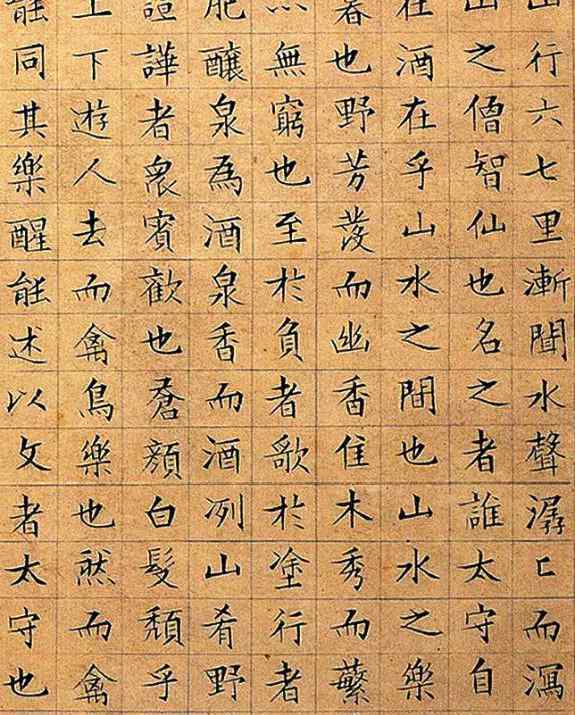 山行六七里漸聞水聲潺〻而瀉
山之僧智仙也名之者誰太守自
在酒在乎山水之間也山水之樂
暮也野芳發而幽香佳木秀而蘩
無窮也至於負者歌於塗行者
肥釀泉為酒泉香而酒冽山肴野
諠譁者衆賓歡也蒼顏白髮頹乎
上下遊人去而禽鳥樂也然而禽
能同其樂醒能述以文者太守也